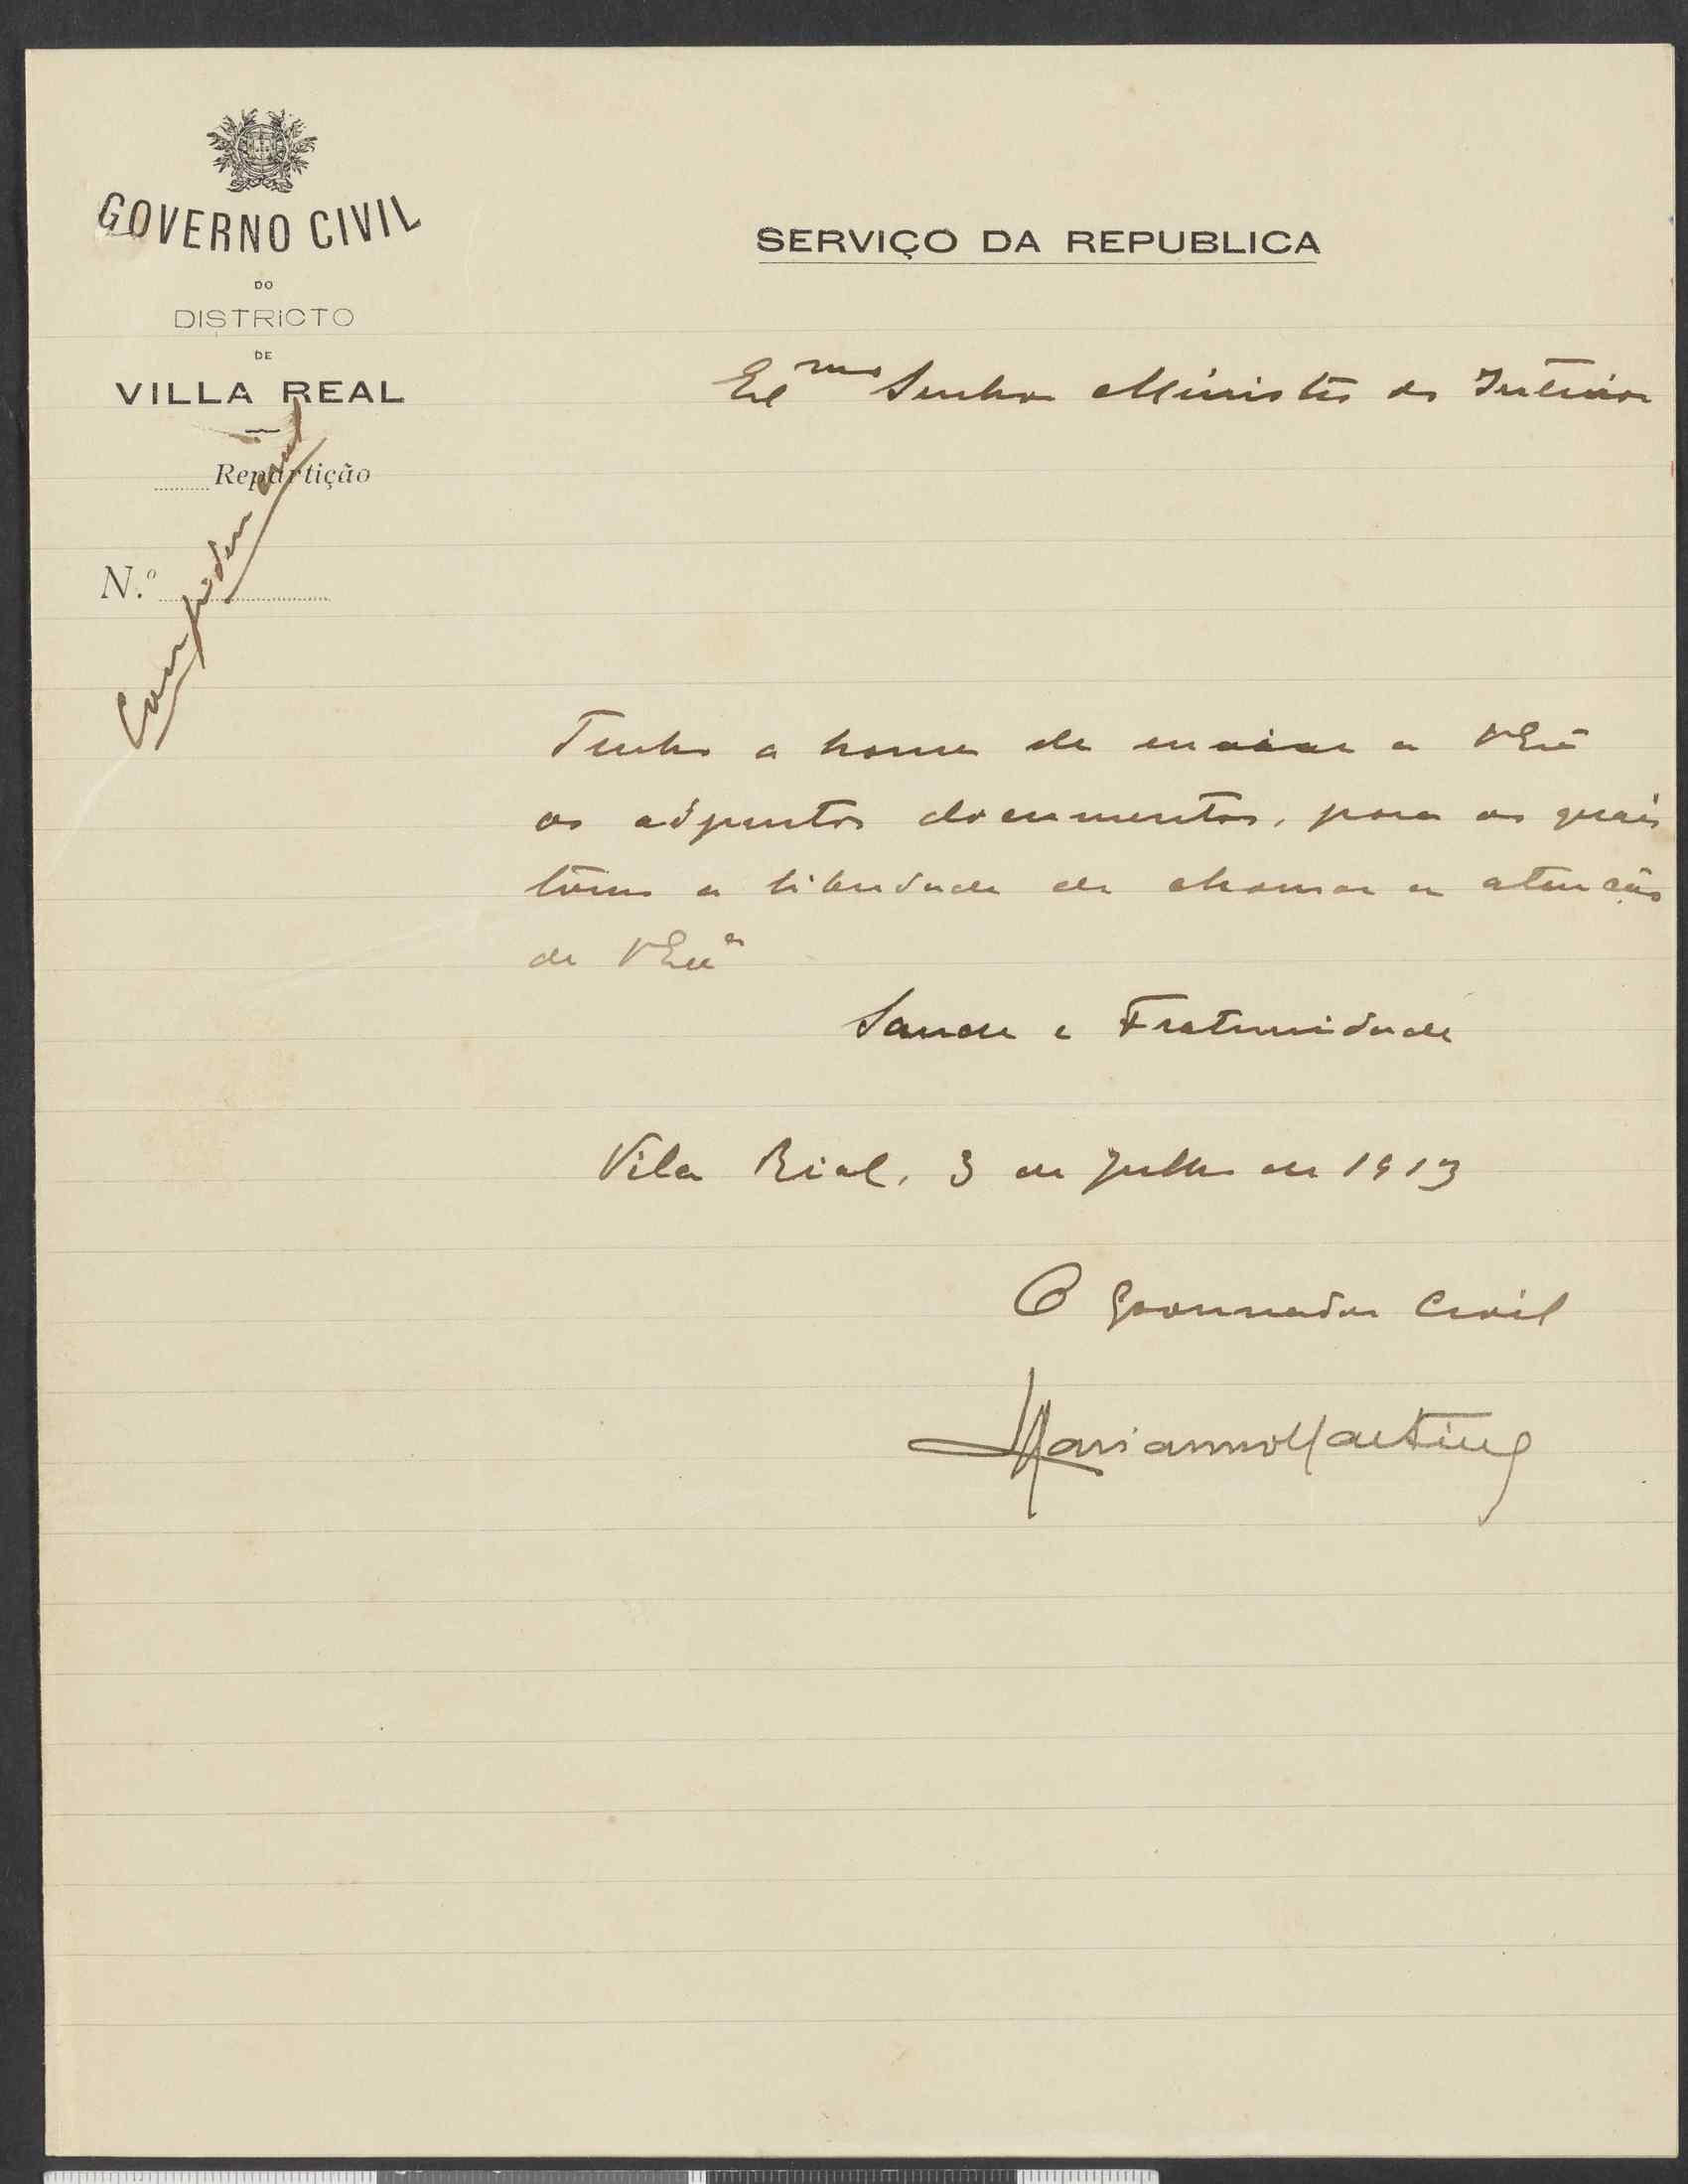 GOVERNO CIVIL
DO
DISTRICTO
DE
VILLA REAL
Repartição
N.º
Confidencial
SERVIÇO DA REPUBLICA
Exmo Senhor Ministro do Interior
Tenho a honra de enviar a V Exª
os adjuntos documentos, para os quais
tomo a liberdade de chamar a atenção
de V Exª
Saude e Fraternidade
Vila Rial, 3 de Julho de 1913
O Governador Civil
Marianno Martins